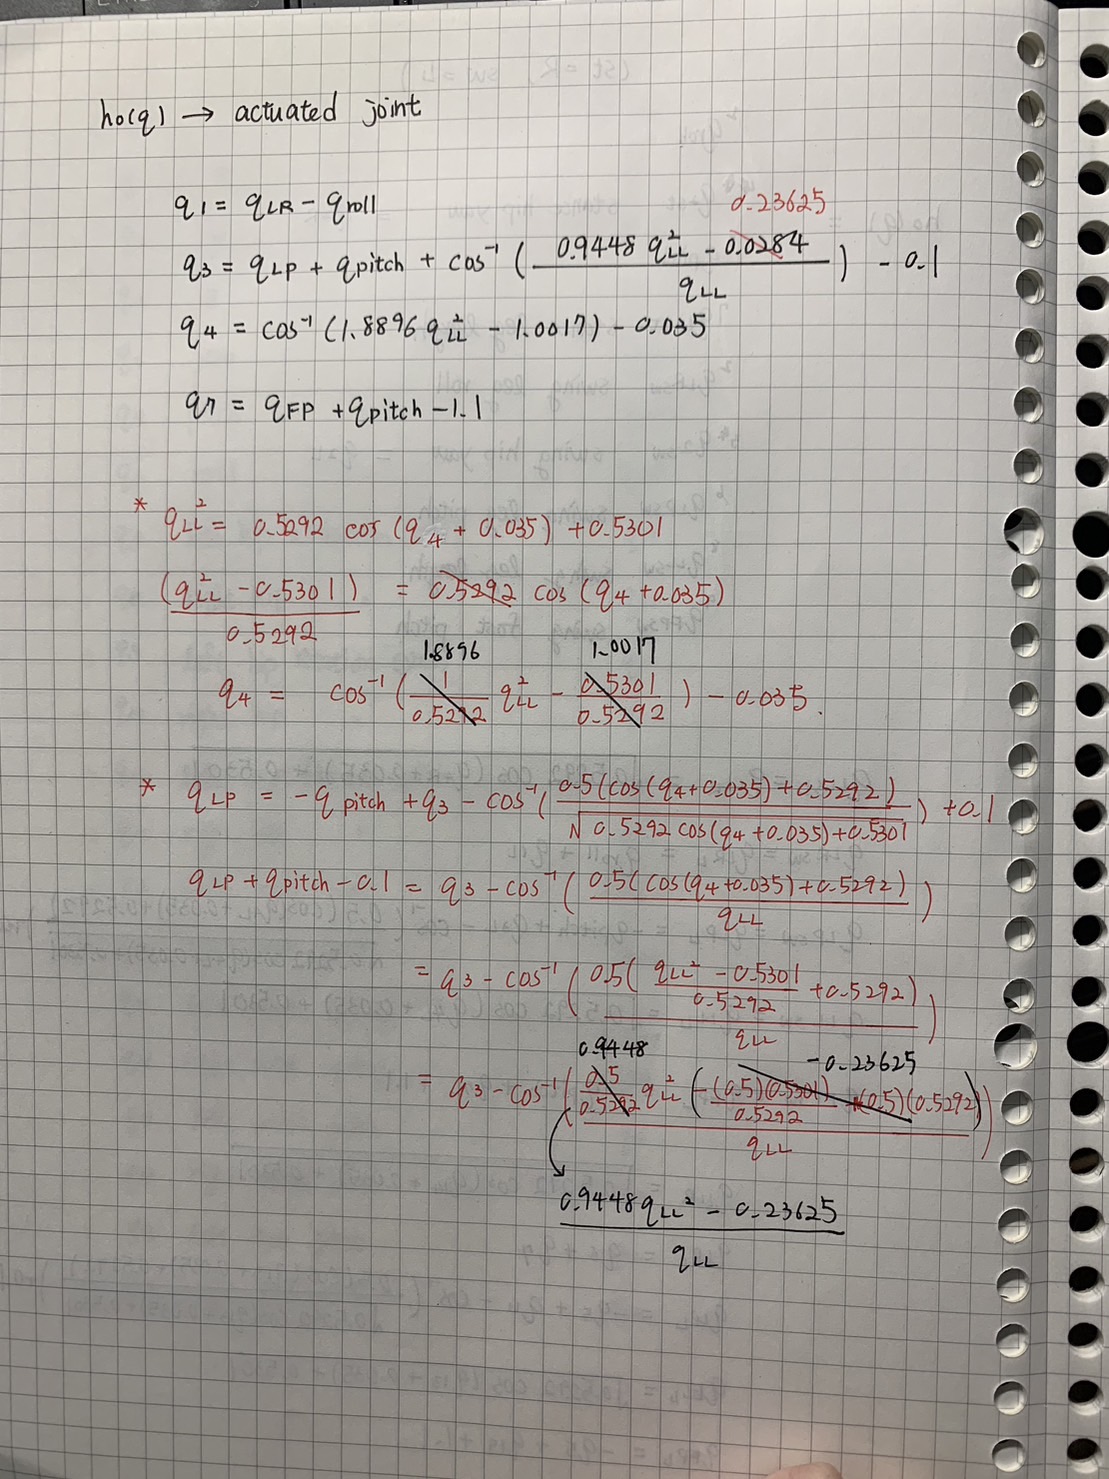 h₀(q) → actuated joint
q₁ = q_LR − q_roll
0.23625
q₃ = q_LP + q_pitch + cos⁻¹ ( (0.9448 q_LL² − 0.0284) / q_LL ) − 0.1
q₄ = cos⁻¹ (1.8896 q_LL² − 1.0017) − 0.035
q₇ = q_FP + q_pitch − 1.1
* q_LL² = 0.5292 cos (q₄ + 0.035) + 0.5301
(q_LL² − 0.5301) / 0.5292 = 0.5292 cos (q₄ + 0.035)
1.8896 1.0017
q₄ = cos⁻¹ ( 1 / 0.5292 q_LL² − 0.5301 / 0.5292 ) − 0.035.
* q_LP = −q_pitch + q₃ − cos⁻¹ ( 0.5(cos(q₄+0.035)+0.5292) / √(0.5292 cos(q₄+0.035)+0.5301) ) + 0.1
q_LP + q_pitch − 0.1 = q₃ − cos⁻¹ ( 0.5(cos(q₄+0.035)+0.5292) / q_LL )
= q₃ − cos⁻¹ ( 0.5( (q_LL² − 0.5301) / 0.5292 + 0.5292) / q_LL )
0.9448 −0.23625
= q₃ − cos⁻¹ ( ( 0.5 / 0.5292 q_LL² (−(0.5)(0.5301) / 0.5292 + (0.5)(0.5292)) ) / q_LL )
(0.9448 q_LL² − 0.23625) / q_LL